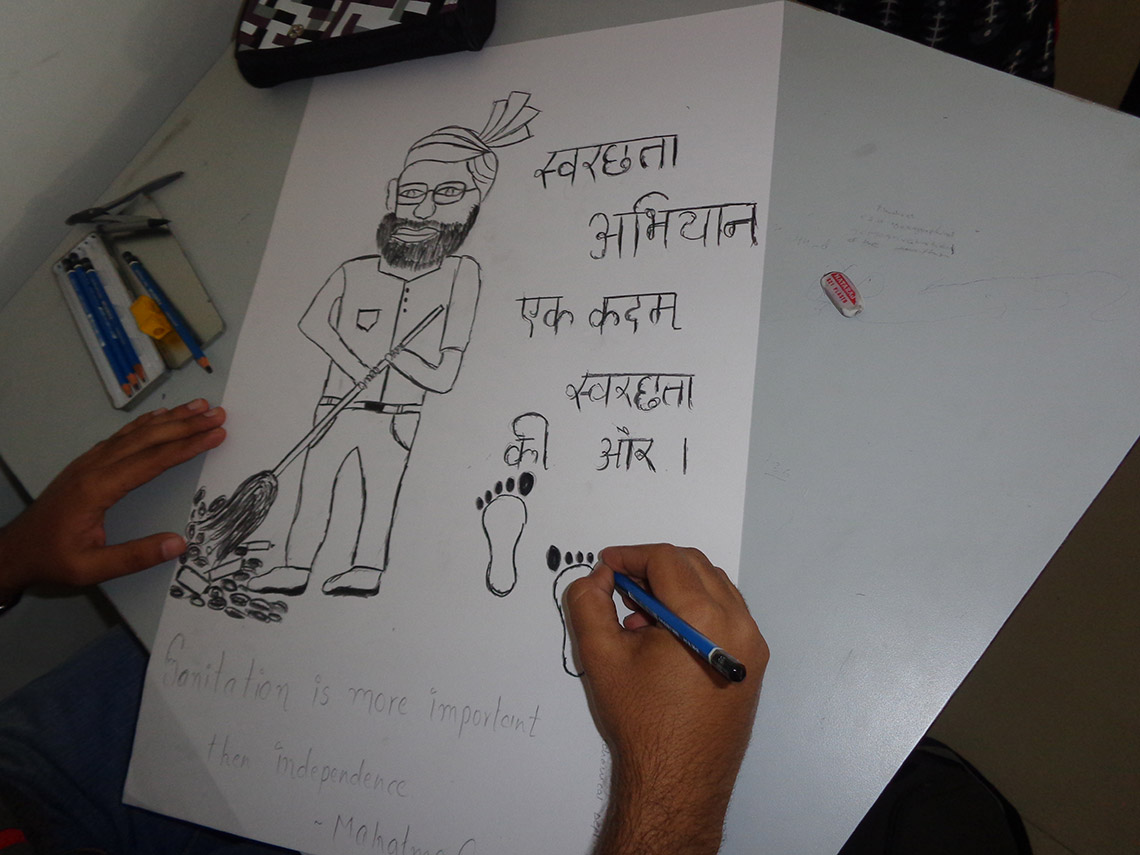 स्वरछता
अभियान
एक कदम
स्वरछता
की और ।
Sanitation is more important
then independence
- Mahatma G